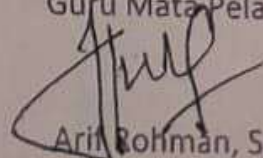 Guru Mata Pela
Arif Rohman, S